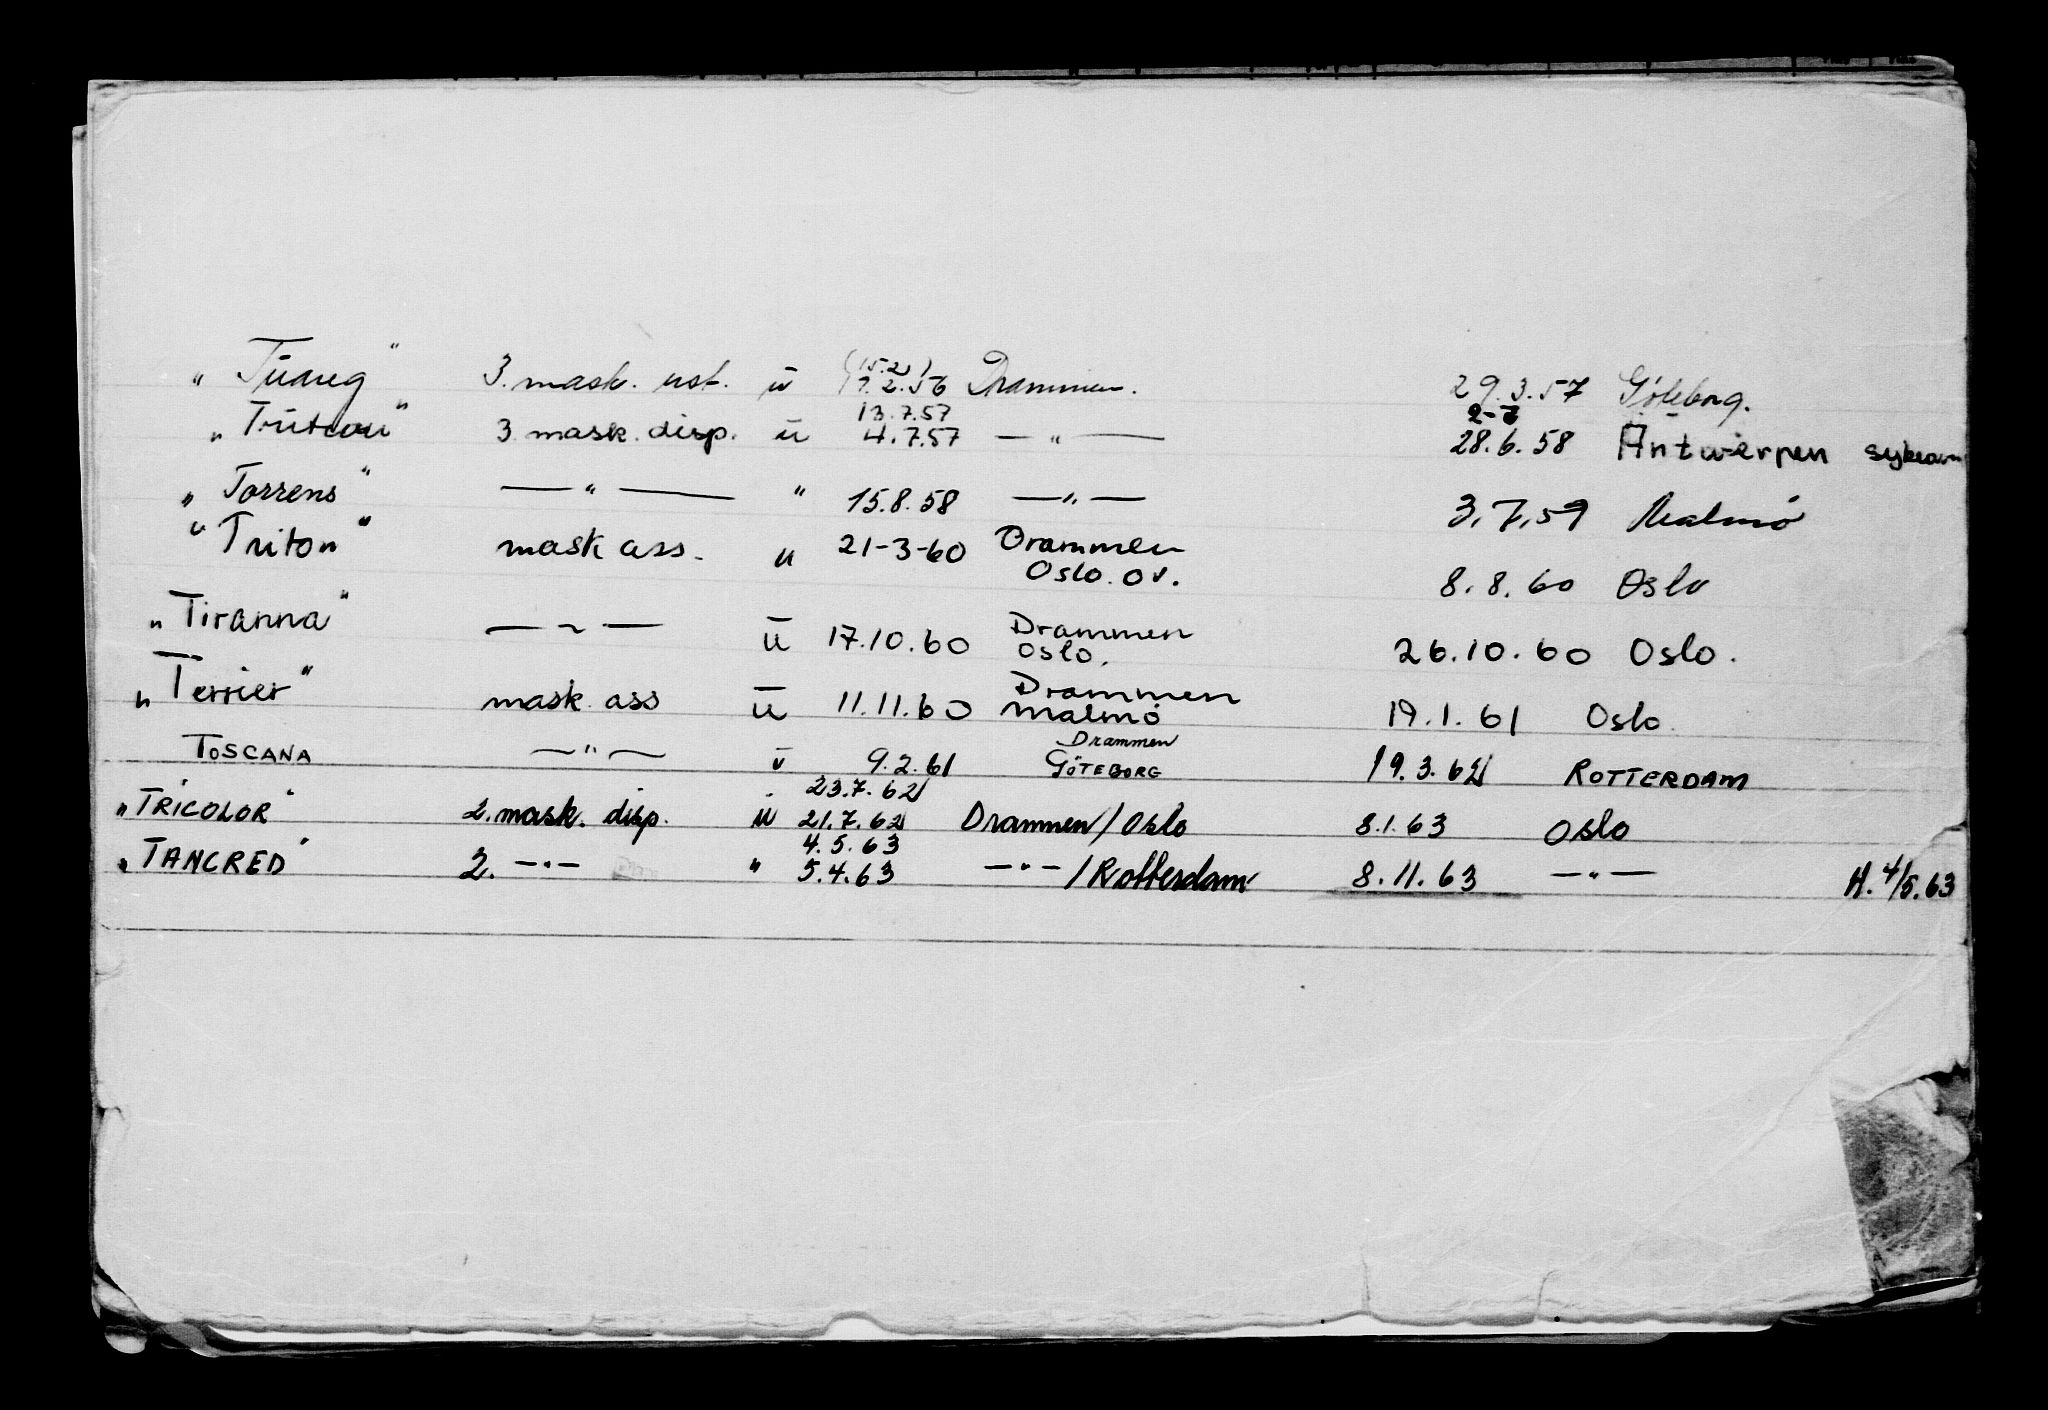 „ Tüareg " 3. mask. ust. ü (15.2) 1.2.56 Drammen. 29.3.57 Göteborg.
13.7.57 2-7
„ " 3 mask. disp. ü 4.7.57 — " — 28.6.58 Antwerpen
„ Torrens " — " — " 15.8.58 — " — 3.7.59 Malmö
" Triton " mask ass. u 21-3-60 Drammen
Oslo. ov. 8.8.60 Oslo
„ Tiranna " — ~ — ü 17.10.60 Drammen
Oslo. 26.10.60 Oslo.
„ Terrier " mask. ass ü 11.11.60 Drammen
Malmö 19.1.61 Oslo.
Drammen
TOSCANA — " — ü 9.2.61 GÖTEBORG 19.3.62 ROTTERDAM
23.7.62
„ TRICOLOR " 2. mask. disp. ü 21.7.62 Drammen / Oslo 8.1.63 Oslo
4.5.63
„ TANCRED " 2. — " — " 5.4.63 — " — / Rotterdam 8.11.63 — " — H. 4/5.63